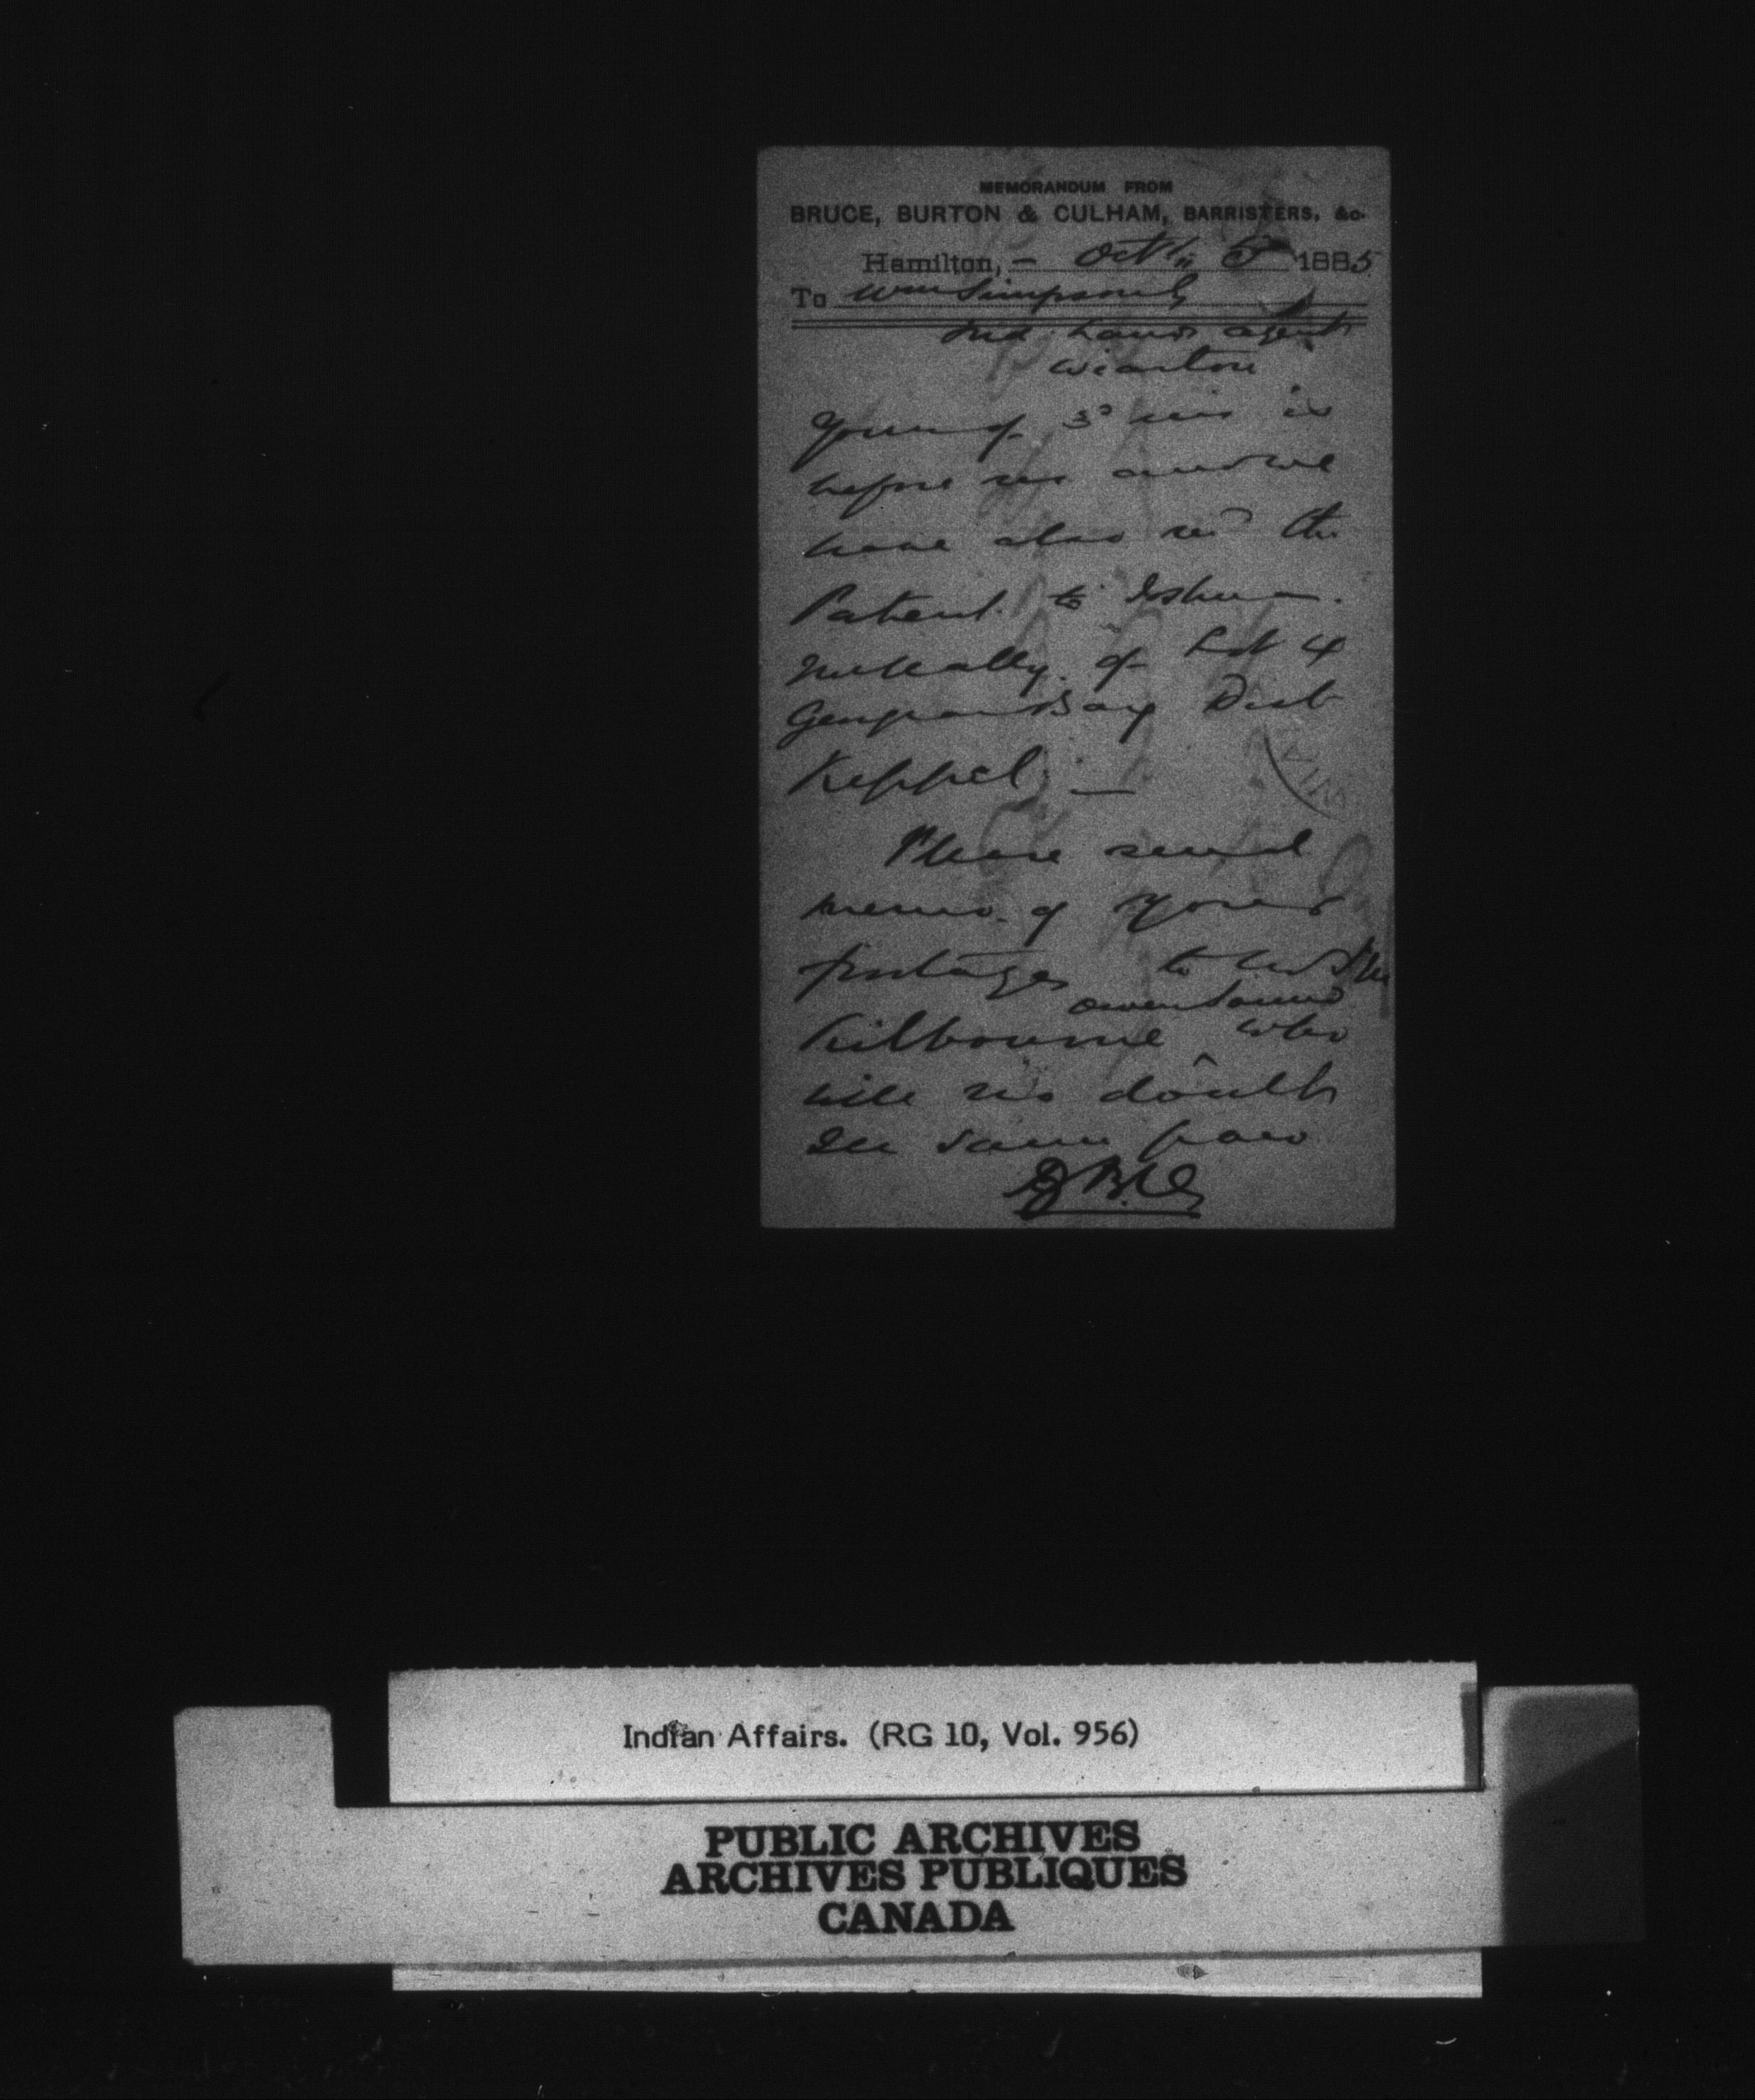 MEMORANDUM FROM
BRUCE, BURTON & CULHAM, BARRISTERS, &c.
Hamilton, - Oct 5 1885
To Wm Simpson
Ind Land Agent
Wiarton
Your of 3rd is
before us and we
have also rec'd the
Patent to Joshua
of Lot 4
Georgian Bay Dist
Keppel —
Please send
memo. of your
postages to
Owen Sound
Kilbourne who
will no doubt
see same paid
Indian Affairs. (RG 10, Vol. 956)
PUBLIC ARCHIVES
ARCHIVES PUBLIQUES
CANADA